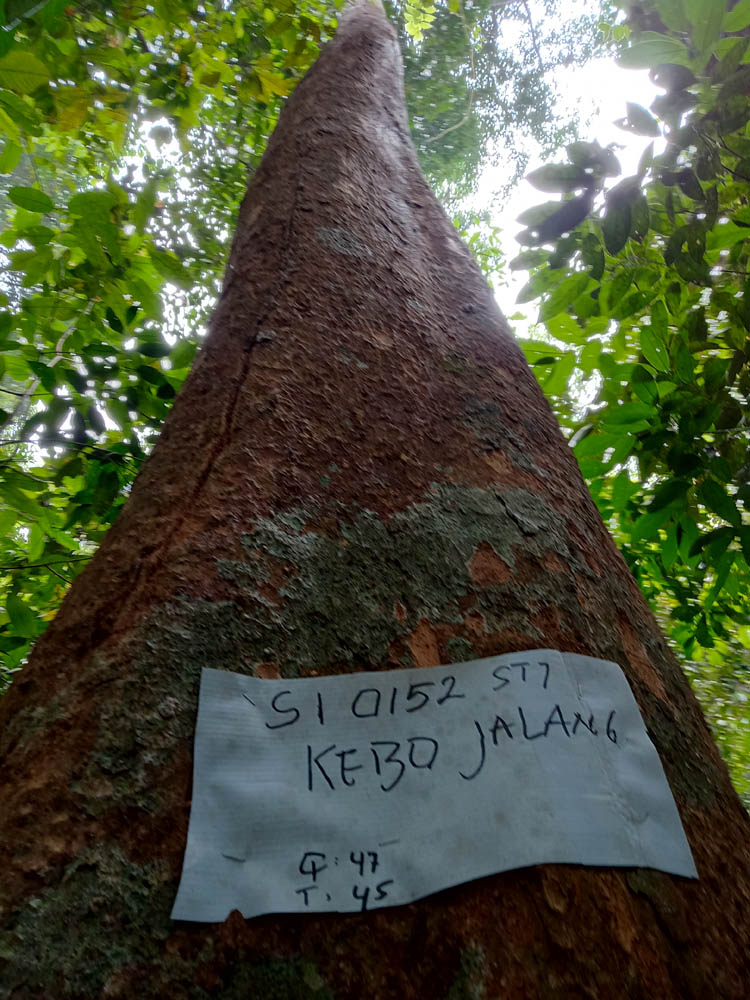 S1 0152 ST7
KEBO JALANG
Φ: 47
T. 45